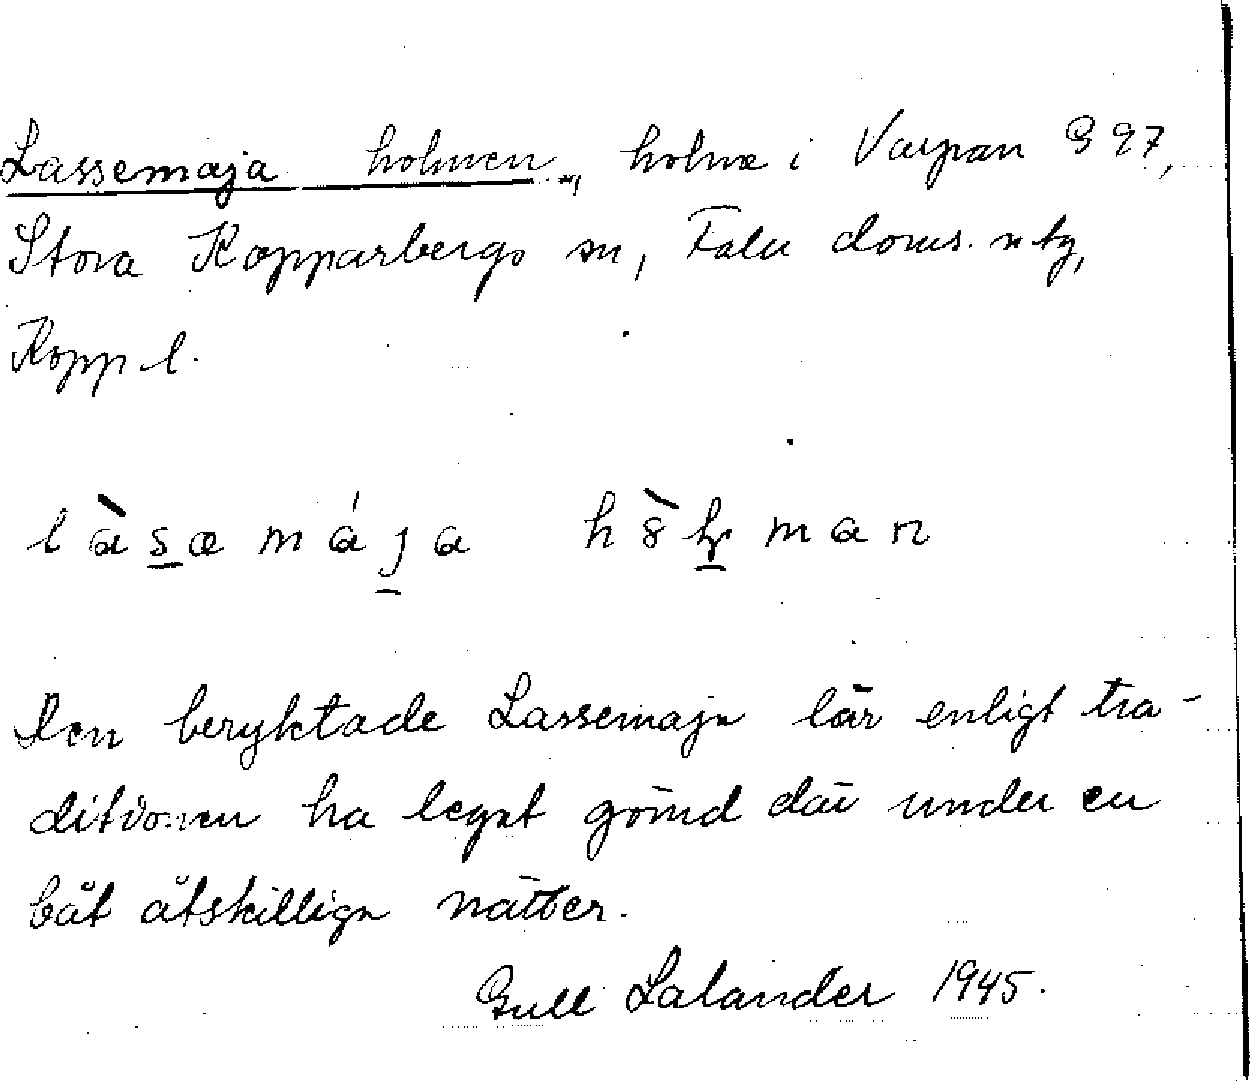 Lassemaja holmen, holme i Varpan G 97,
Stora Kopparbergs sn, Falu doms. ntg,
Kopp l.
làsæmája hòlman
Den beryktade Lassemaja lär enligt tra-
ditionen ha legat gömd där under en
båt åtskilliga nätter.
Gull Lalander 1945.